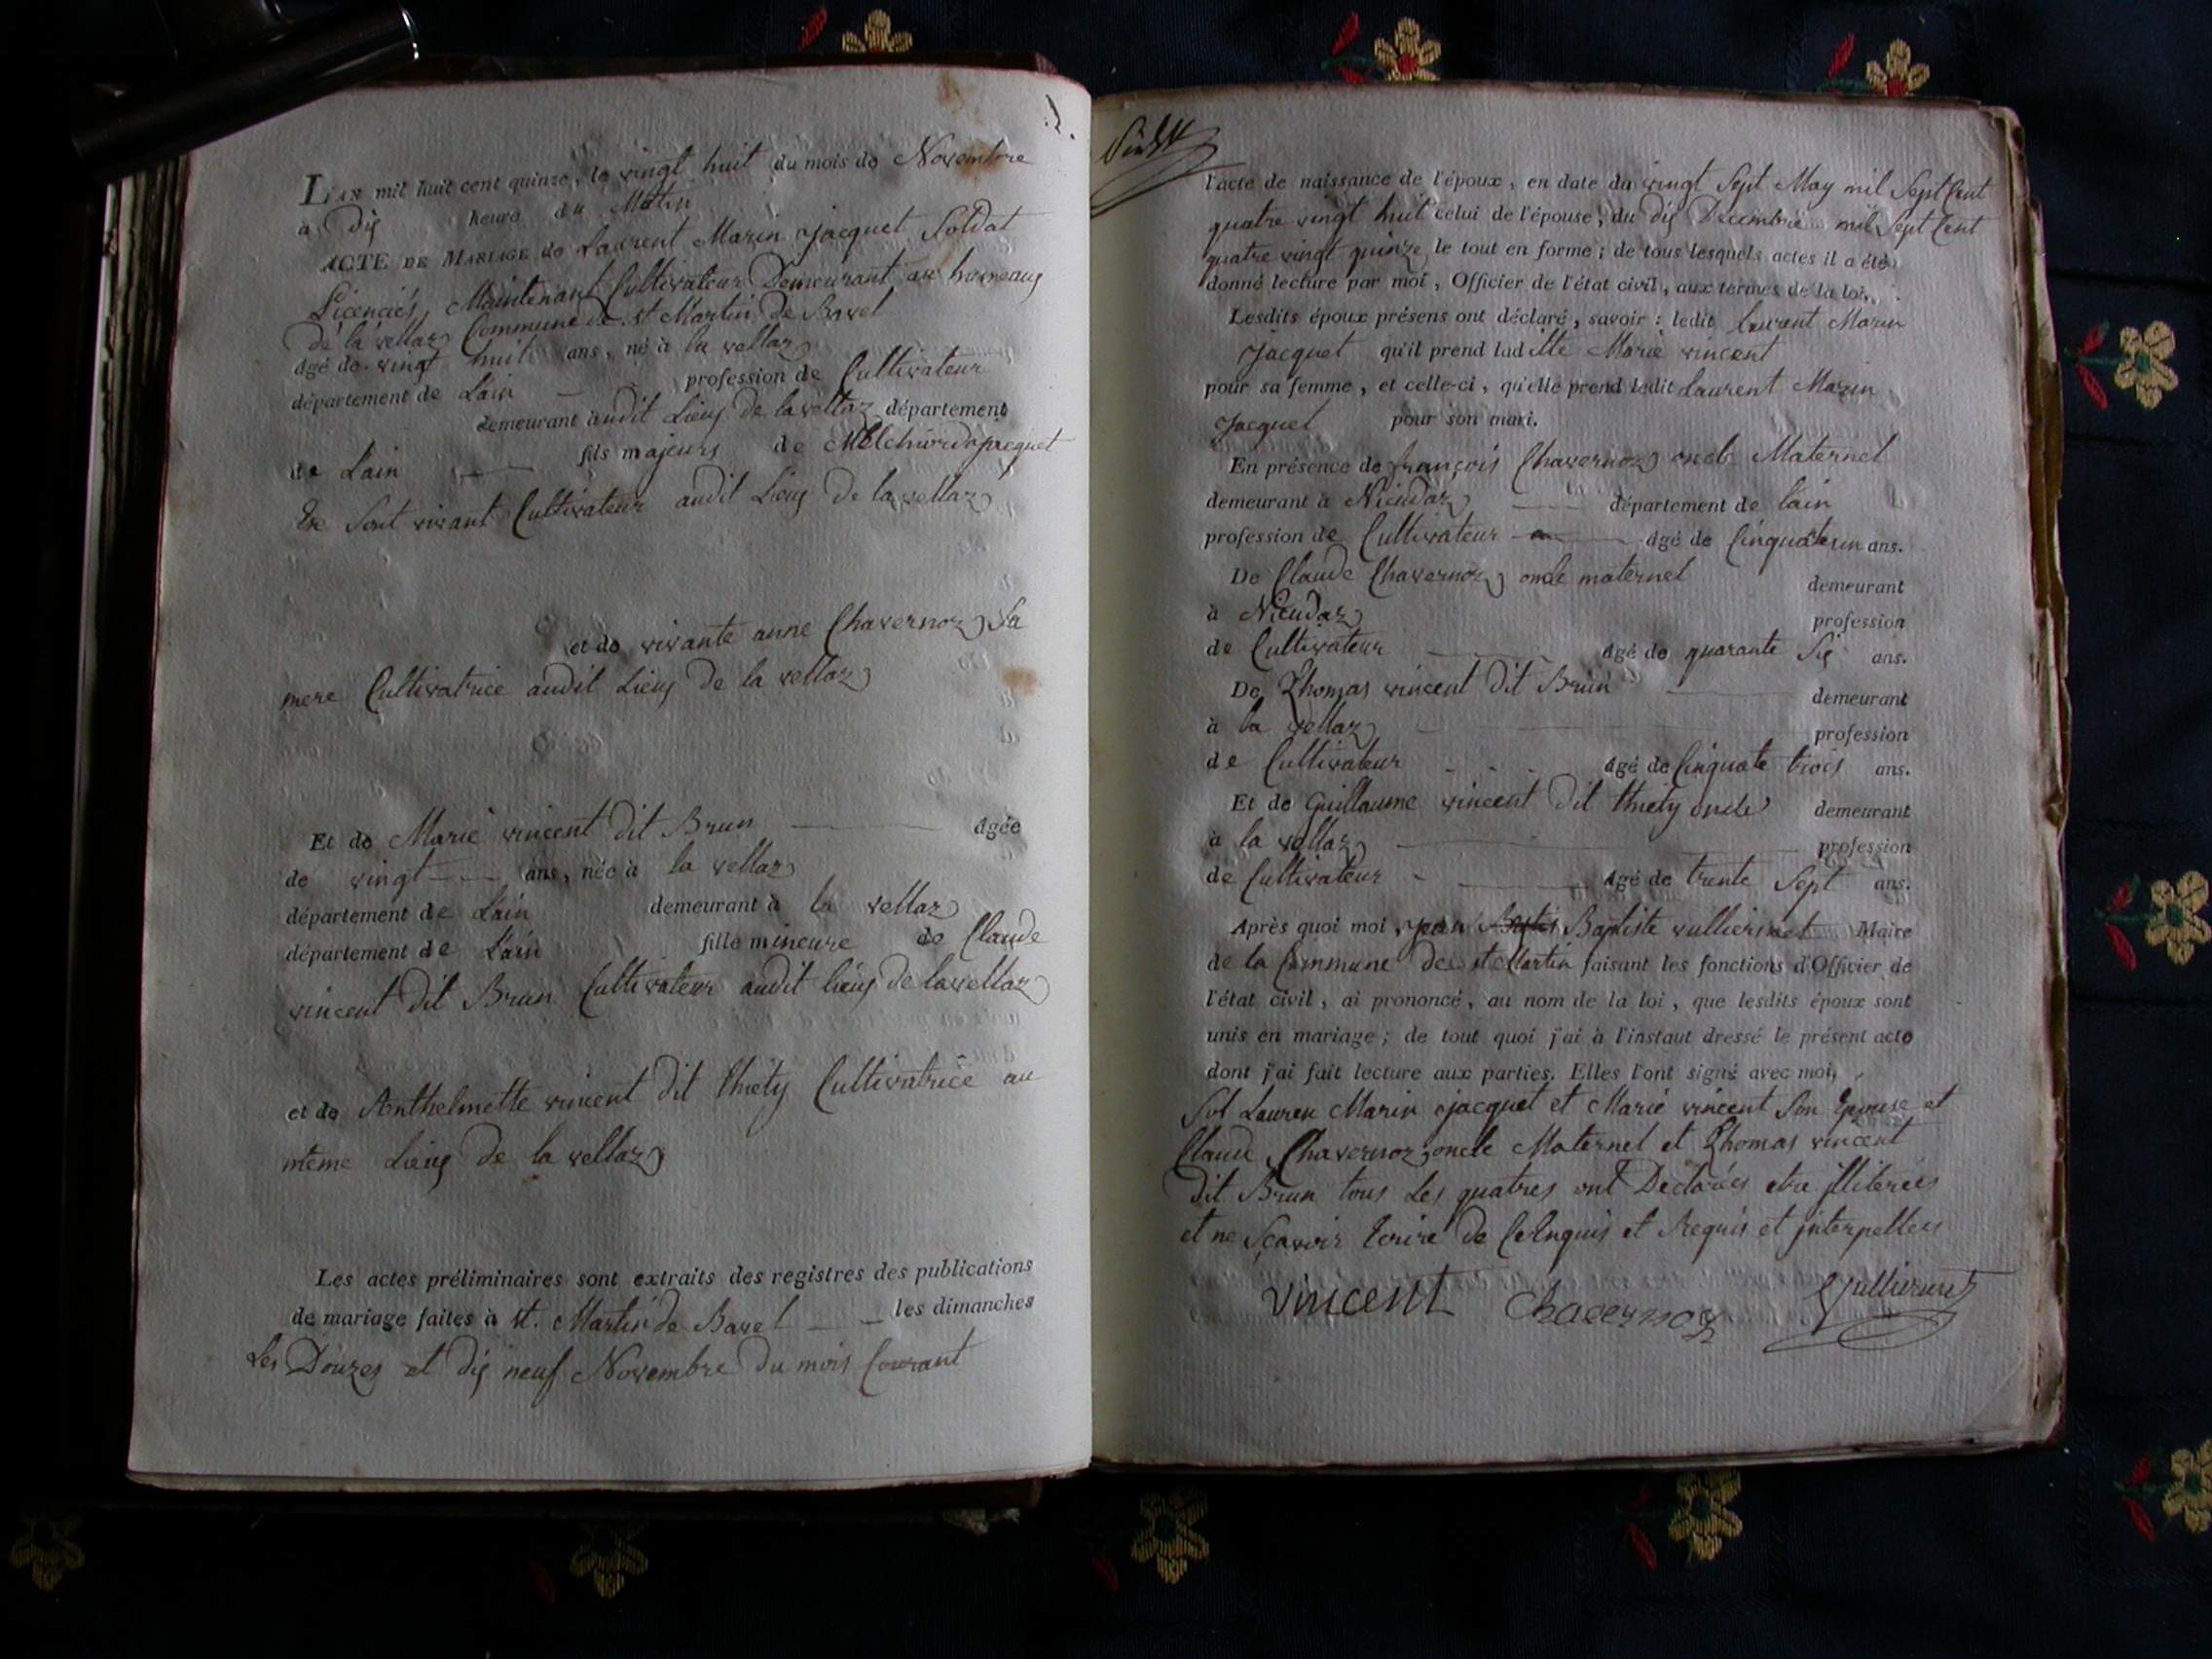 L'AN mil huit cent quinze, le vingt huit du mois de Novembre
à Dix heure du Matin
ACTE DE MARIAGE de Laurent Marin Jacquet Soldat
Licenciés, Maintenant Cultivateur Demeurant au hameaux
De la vellaz Commune de st Martin De Bavel
âgé de vingt huit ans, né à la vellaz
département de Lain profession de Cultivateur
demeurant audit Lieux de la vellaz département
de Lain fils majeurs de Melchior Jacquet
audit Lieux De la vellaz
et de vivante anne Chavernoz Sa
mere Cultivatrice audit Lieux De la vellaz
Et de Marie vincent dit Brun âgée
de vingt ans, née à la vellaz
département de Lain demeurant à la vellaz
département de Lain fille mineure de Claude
vincent dit Brun Cultivateur audit lieux de la vellaz
et de Anthelmette vincent dit thiety Cultivatrice au
même Lieux De la vellaz
Les actes préliminaires sont extraits des registres des publications
de mariage faites à st. Martin de Bavel les dimanches
Les Douzes et dix neuf Novembre Du mois Courant
l'acte de naissance de l'époux, en date du vingt Sept May mil Sept Cent
quatre vingt huit celui de l'épouse, du dix Decembre mil Sept Cent
quatre vingt quinze le tout en forme; de tous lesquels actes il a été
donné lecture par moi, Officier de l'état civil, aux termes de la loi.
Lesdits époux présens ont déclaré, savoir: ledit Laurent Marin
Jacquet qu'il prend laditte Marie vincent
pour sa femme, et celle-ci, qu'elle prend ledit Laurent Marin
Jacquet pour son mari.
En présence de françois Chavernoz oncle Maternel
demeurant à Nieudaz département de Lain
profession de Cultivateur âgé de ans.
De Claude Chavernoz oncle maternel demeurant
à Nieudaz profession
de Cultivateur âgé de quarante Six ans.
De Thomas vincent Dit Brun demeurant
à la vellaz profession
de Cultivateur âgé de Cinquate trois ans.
Et de Guillaume vincent dit thiety oncle demeurant
à la vellaz profession
de Cultivateur âgé de trente Sept ans.
Après quoi moi, jean Baptiste vulliermet Maire
de la Commune de st Martin faisant les fonctions d'Officier de
l'état civil, ai prononcé, au nom de la loi, que lesdits époux sont
unis en mariage; de tout quoi j'ai à l'instant dressé le présent acte
dont j'ai fait lecture aux parties. Elles l'ont signé avec moi,
Sof Lauren Marin jacquet et Marie vincent Son Epouse et
Claude Chavernoz oncle Maternel et Thomas vincent
dit Brun tous Les quatres ont Declarées etre jlliterées
et ne Sçavoir Ecrire de Ce Enquis et Requis et jnterpellées
vincent Chavernoz Vulliermet